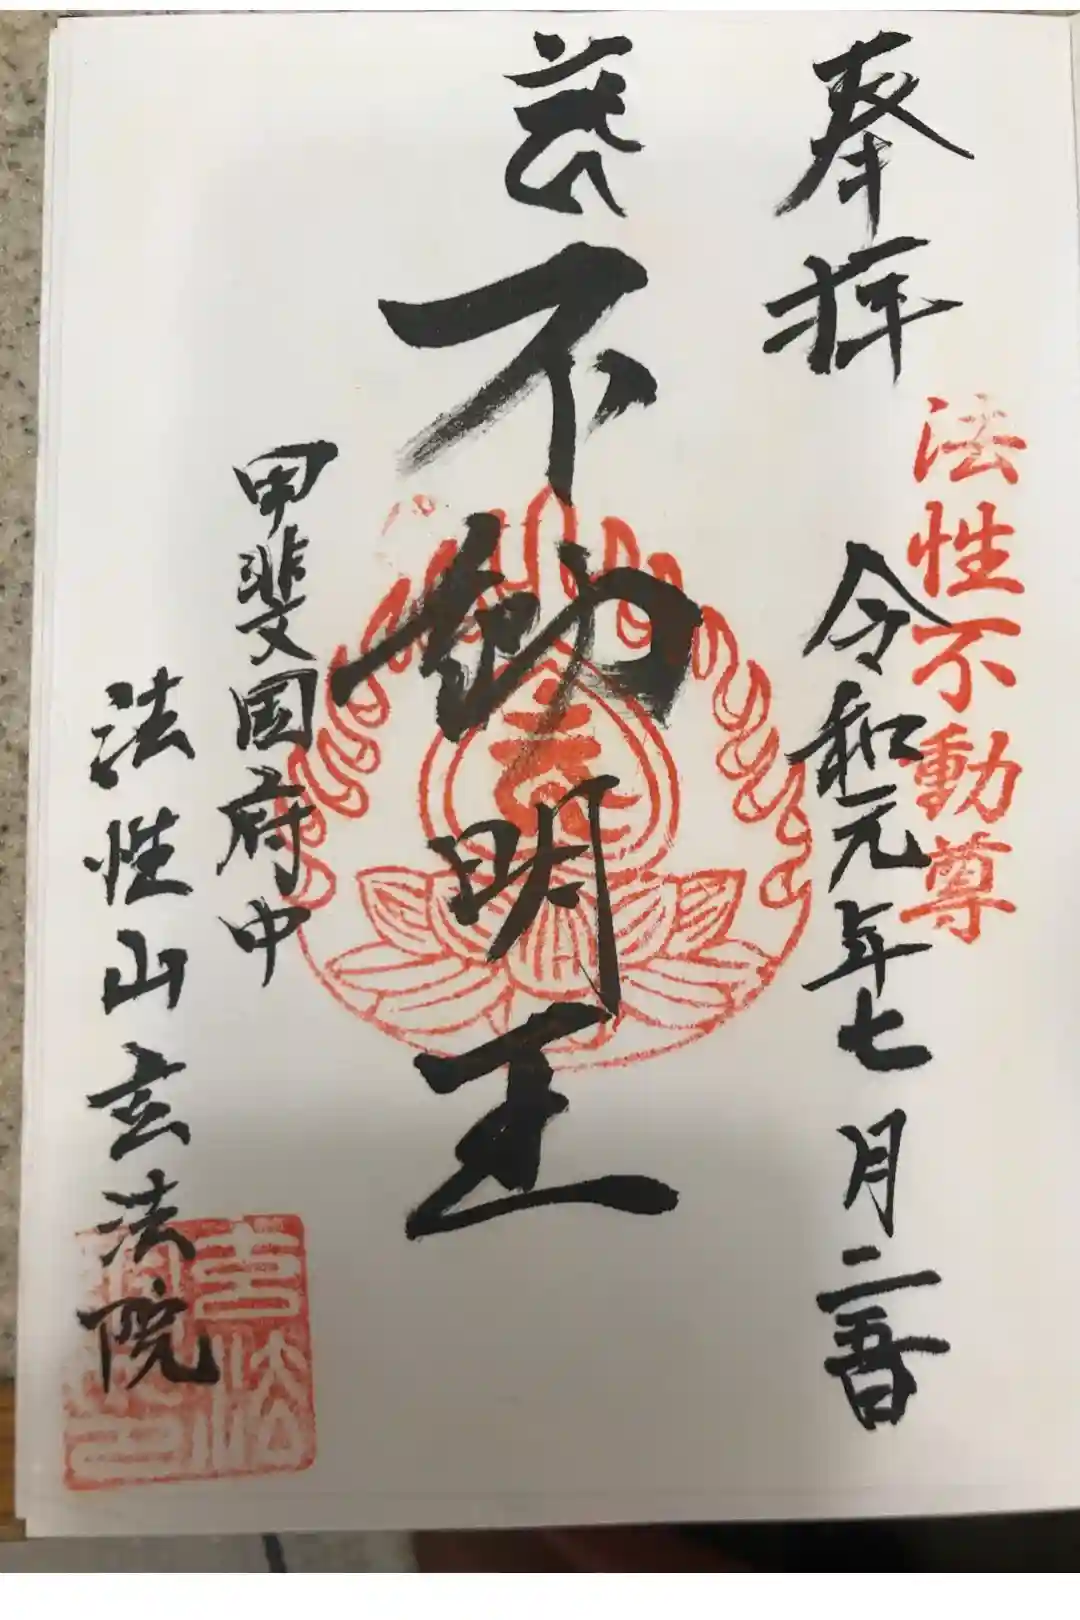 奉拝
法性不動尊
令和元年七月二十五日
不動明王
甲斐国府中
法性山玄法院